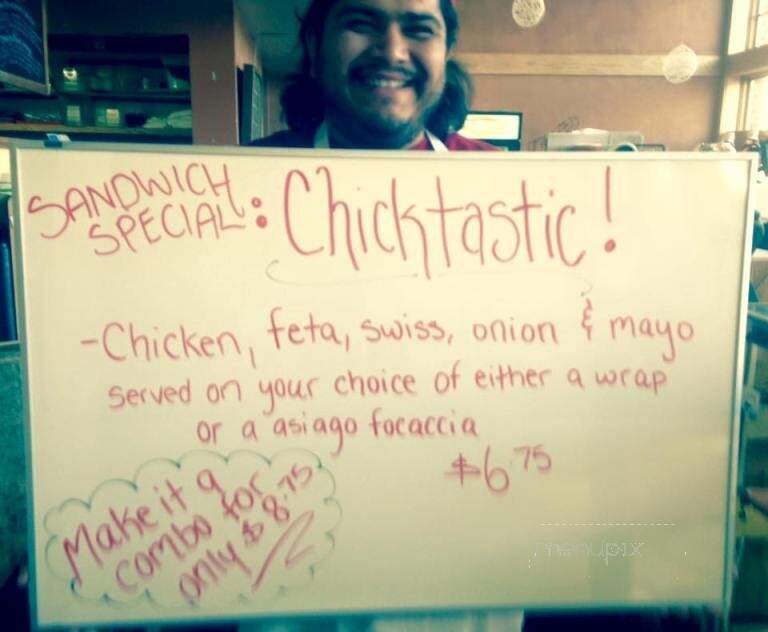 SANDWICH
SPECIAL: Chicktastic!
-Chicken, feta, swiss, onion & mayo
served on your choice of either a wrap
or a asiago focaccia
$6.75
Make it a
combo for
only $8.75
menupix